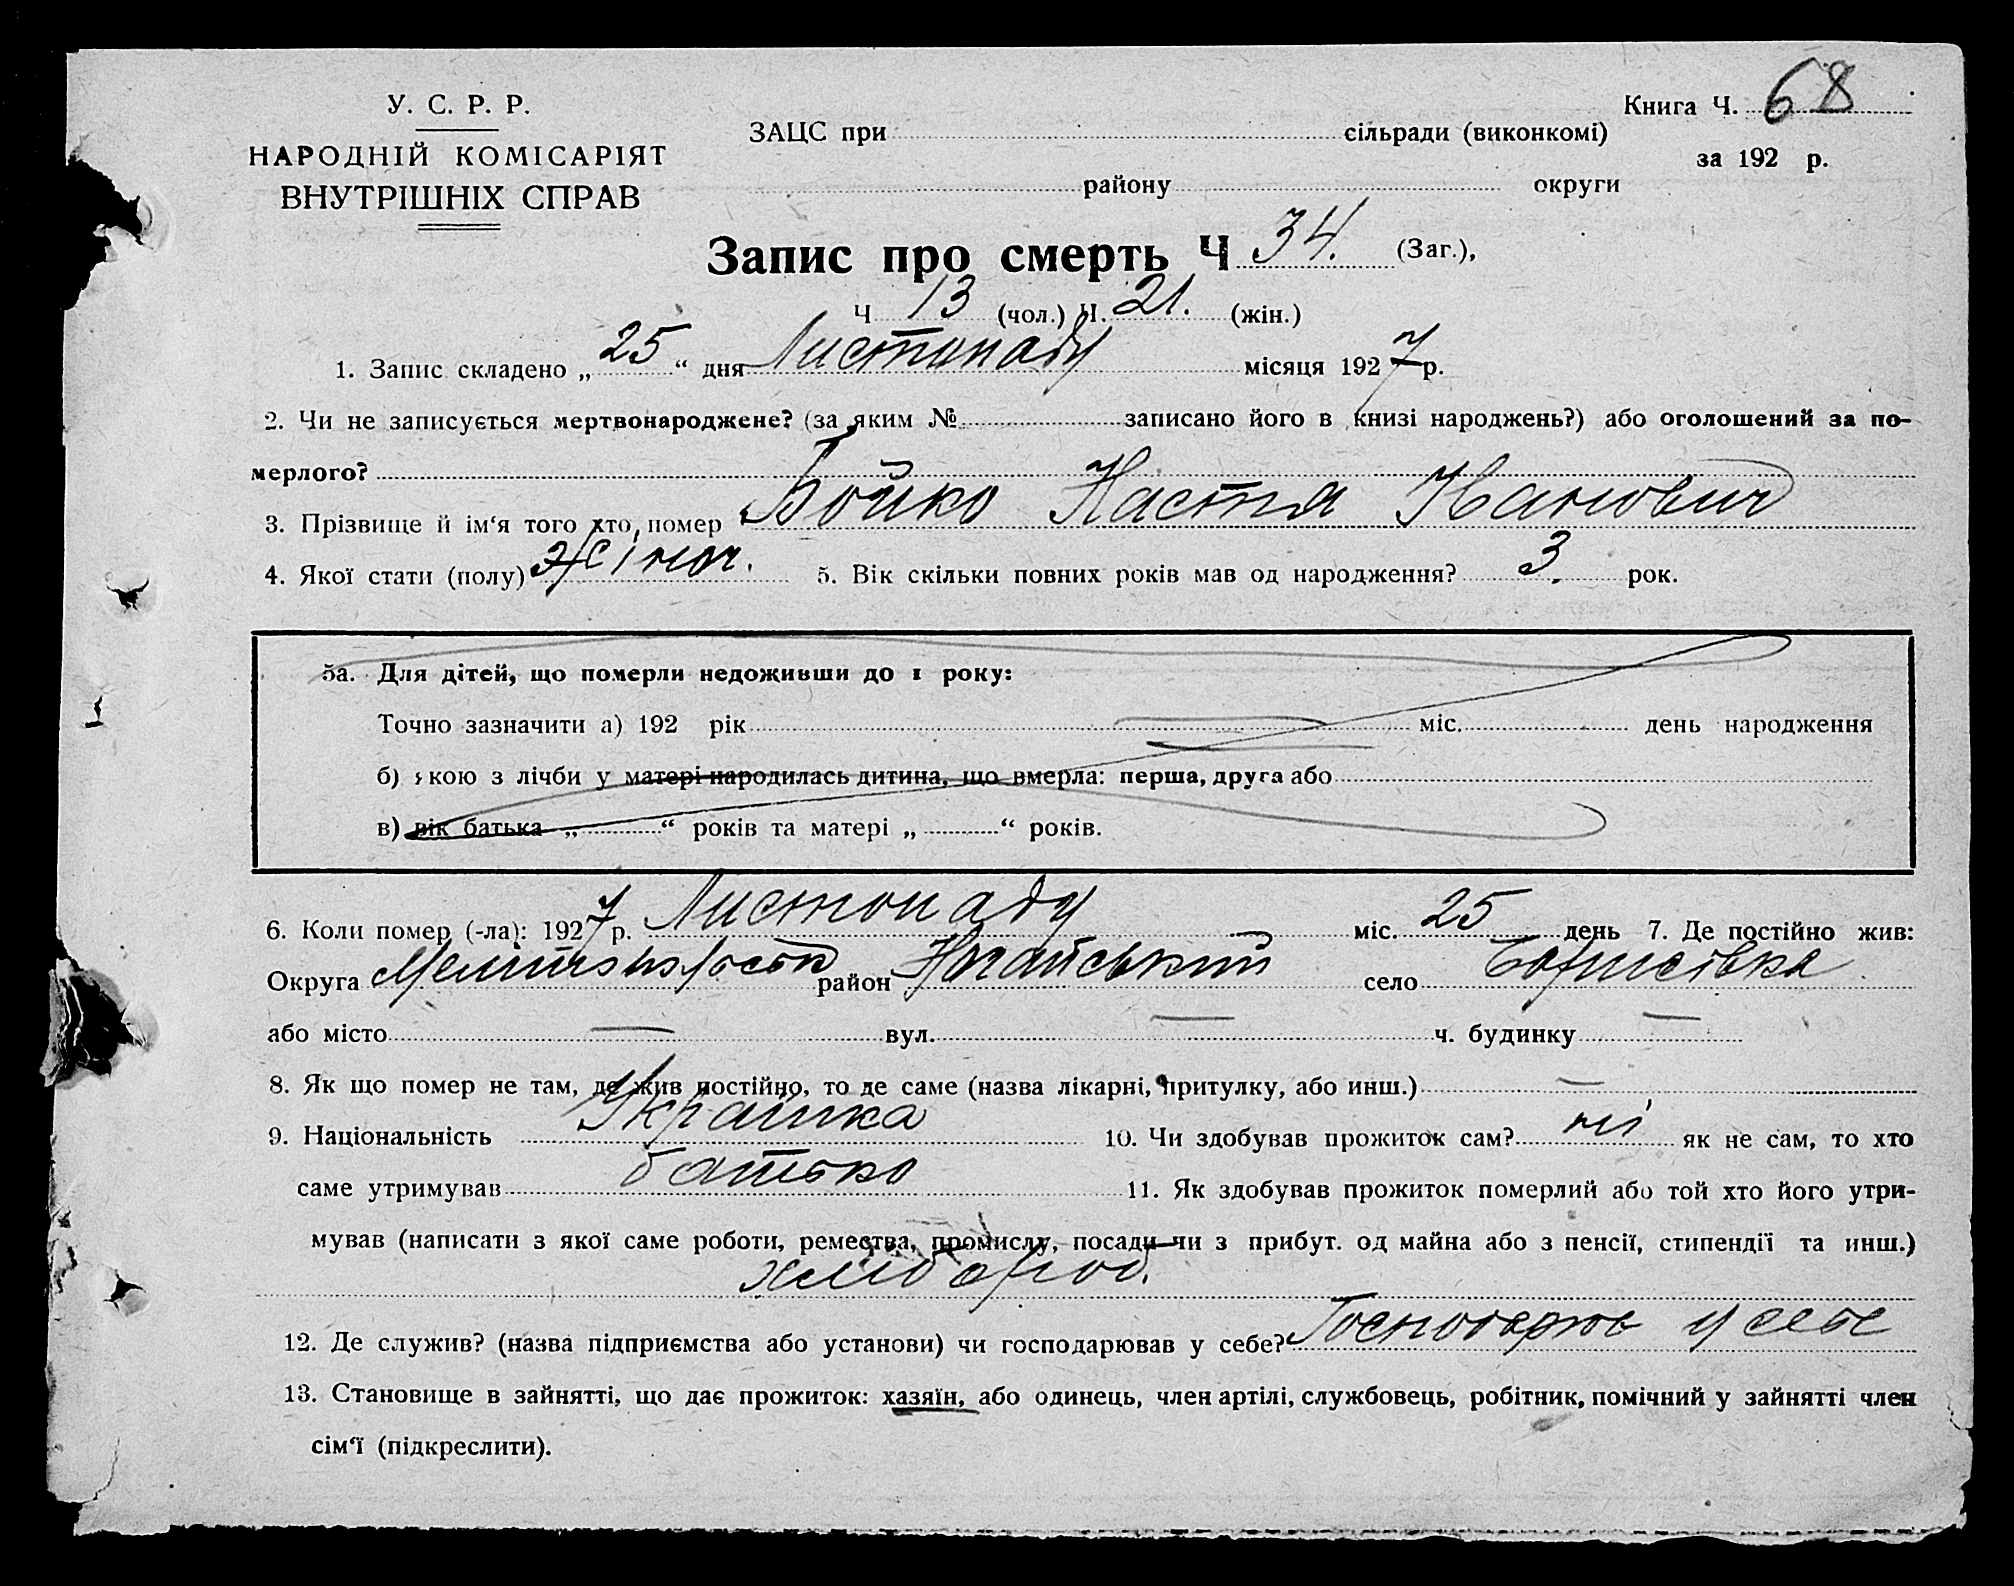 У. С. Р. Р.
НАРОДНІЙ КОМІСАРІЯТ
ВНУТРІШНІХ СПРАВ
ЗАЦС при сільради (виконкомі)
району округи
Книга Ч. 68
за 192 р.
Запис про смерть Ч 34. (Заг.),
Ч 13 (чол.) Ч. 21. (жін.)
1. Запис складено „ 25 “ дня Листопаду місяця 1927 р.
2. Чи не записується мертвонароджене? (за яким № записано його в книзі народжень?) або оголошений за по-
мерлого?
3. Прізвище й ім‘я того хто помер Бойко Настя Іванович
4. Якої стати (полу) Жіноч. 5. Вік скільки повних років мав од народження? 3. рок.
5а. Для дітей, що померли недоживши до 1 року:
Точно зазначити а) 192 рік міс. день народження
б) якою з лічби у матері народилась дитина, що вмерла: перша, друга або
в) вік батька „ “ років та матері „ “ років.
6. Коли помер (-ла): 1927 р. Листопаду міс. 25 день 7. Де постійно жив:
Округа район Ногайський село Борисівка
або місто — вул. — ч. будинку —
8. Як що помер не там, де жив постійно, то де саме (назва лікарні, притулку, або инш.) —
9. Національність Украінка 10. Чи здобував прожиток сам? ні як не сам, то хто
саме утримував батько 11. Як здобував прожиток померлий або той хто його утри-
мував (написати з якої саме роботи, ремества, промислу, посади чи з прибут. од майна або з пенсії, стипендії та инш.)
хлібороб.
12. Де служив? (назва підприємства або установи) чи господарював у себе? у себе
13. Становище в зайнятті, що дає прожиток: хазяїн, або одинець, член артілі, службовець, робітник, помічний у зайнятті член
сім‘ї (підкреслити).